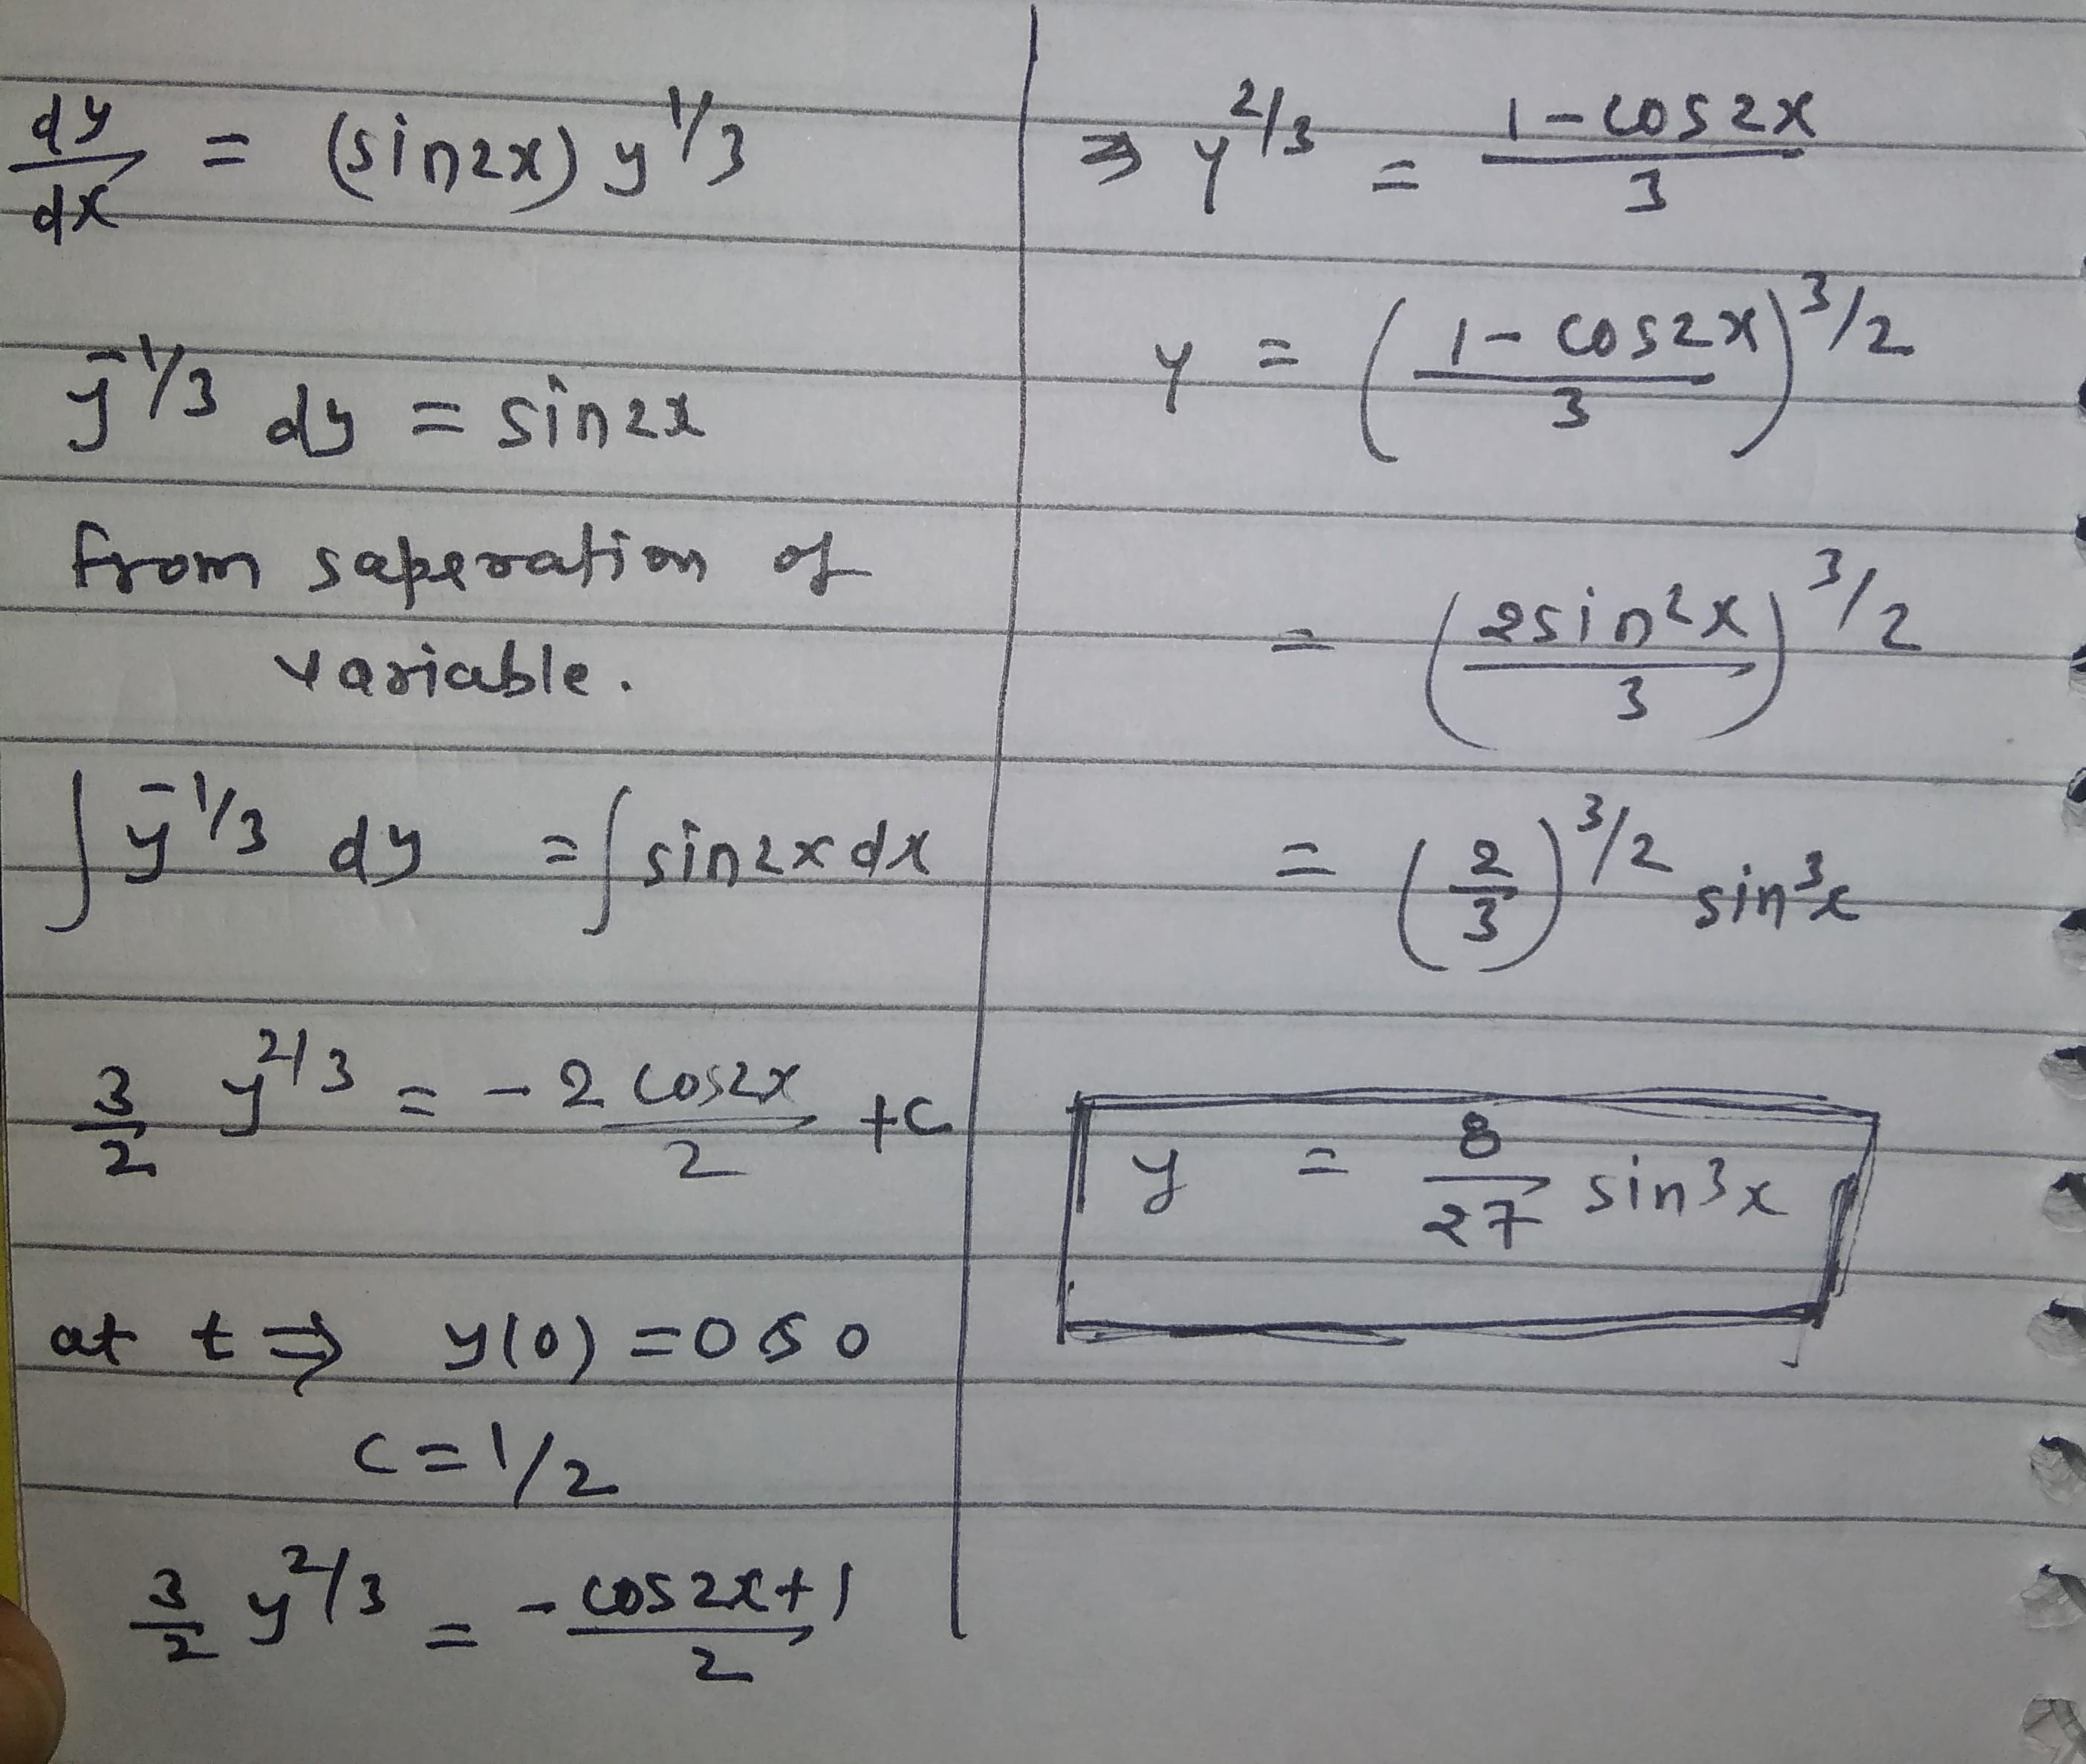 dy/dx = (sin2x) y^1/3
y^-1/3 dy = sin2x
from saperation of
variable.
∫ y^-1/3 dy = ∫ sin2x dx
3/2 y^2/3 = -2 cos2x/2 + c
at t ⇒ y(0) = 0
c = 1/2
3/2 y^2/3 = (-cos2x+1)/2
⇒ y^2/3 = (1-cos2x)/3
y = ((1-cos2x)/3)^3/2
= (2sin²x/3)^3/2
= (2/3)^3/2 sin³x
y = 8/27 sin³x